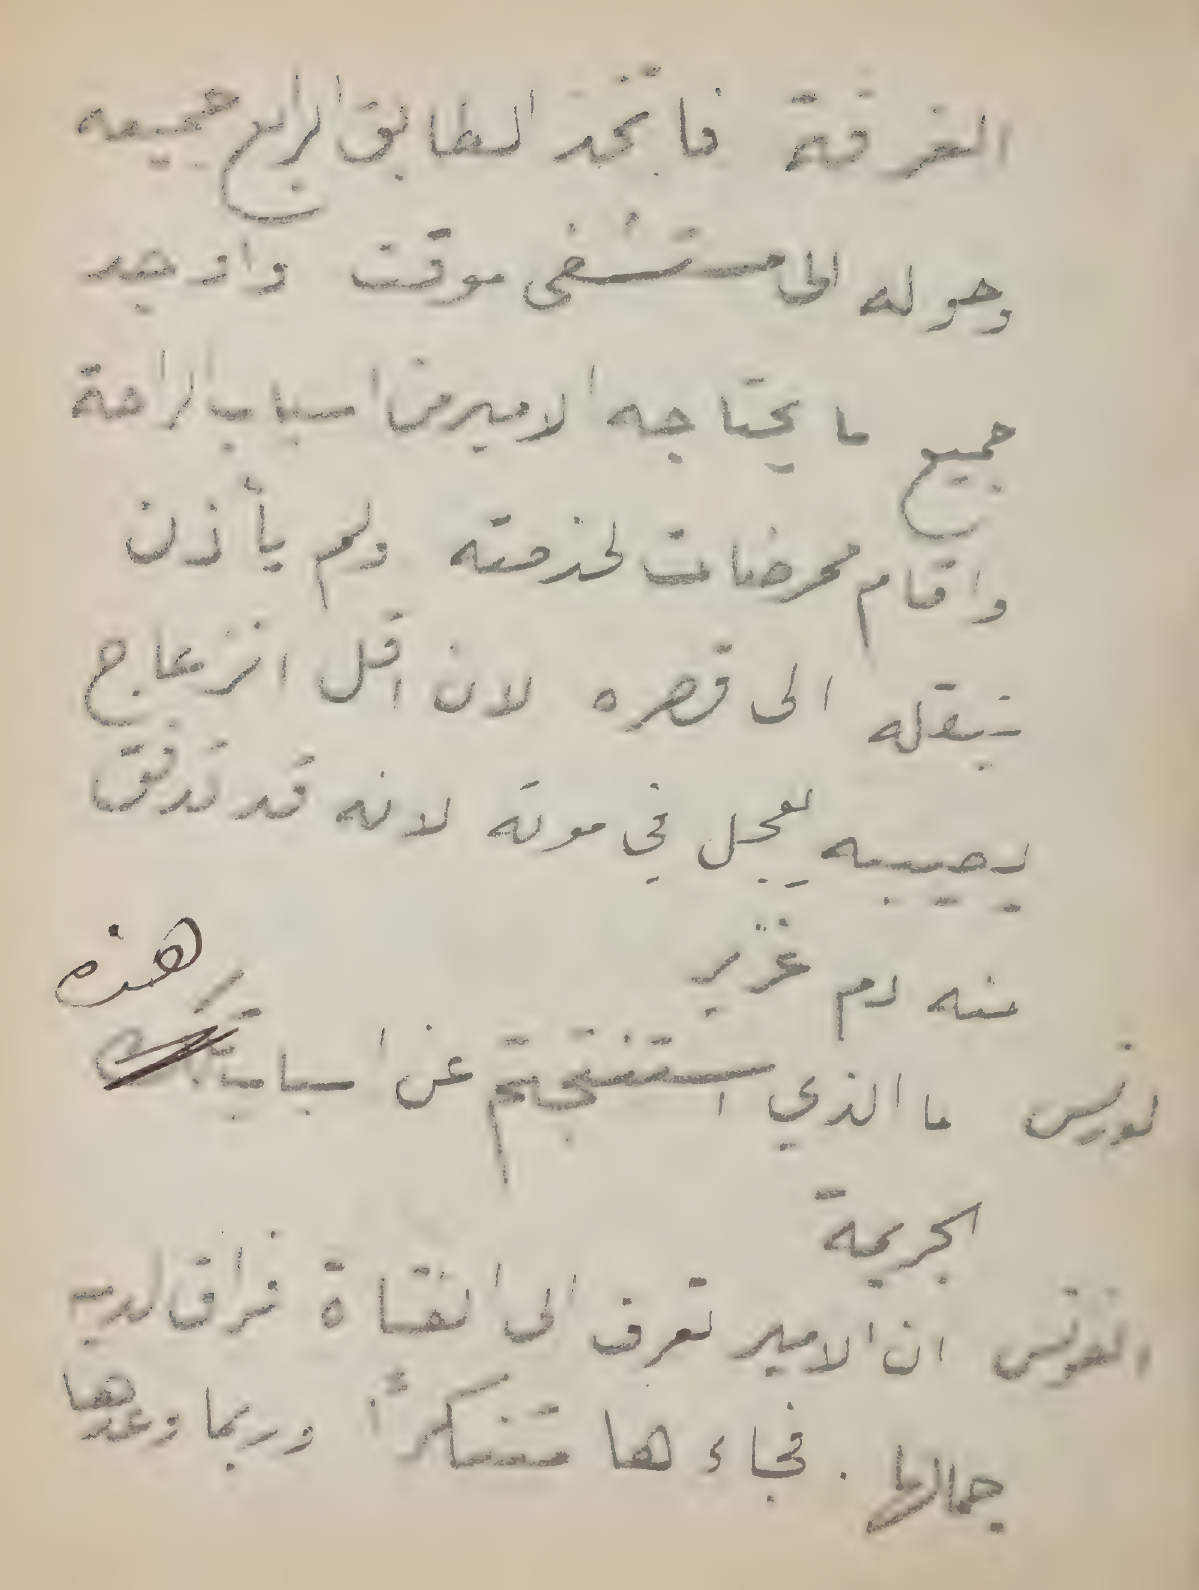 الغرفة فاتخذ الطابق الرابع جميعه
وحوله الى مستشفى موقت واوجد
جميع ما يحتاجه الامير من اسباب الراحة
واقام ممرضات لخدمته ولم يأذن
بنقله الى قصره لان اقل انزعاج
يصيبه يعجل في موته لانه قد تدفق
منه دم غزير
لورنس ما الذي استنتجتم عن اسباب هذه
الجريمة
الفونس ان الامير تعرف الى الفتاة فراق لديه
جمالها . فجاءها متنكراً وربما وعدها